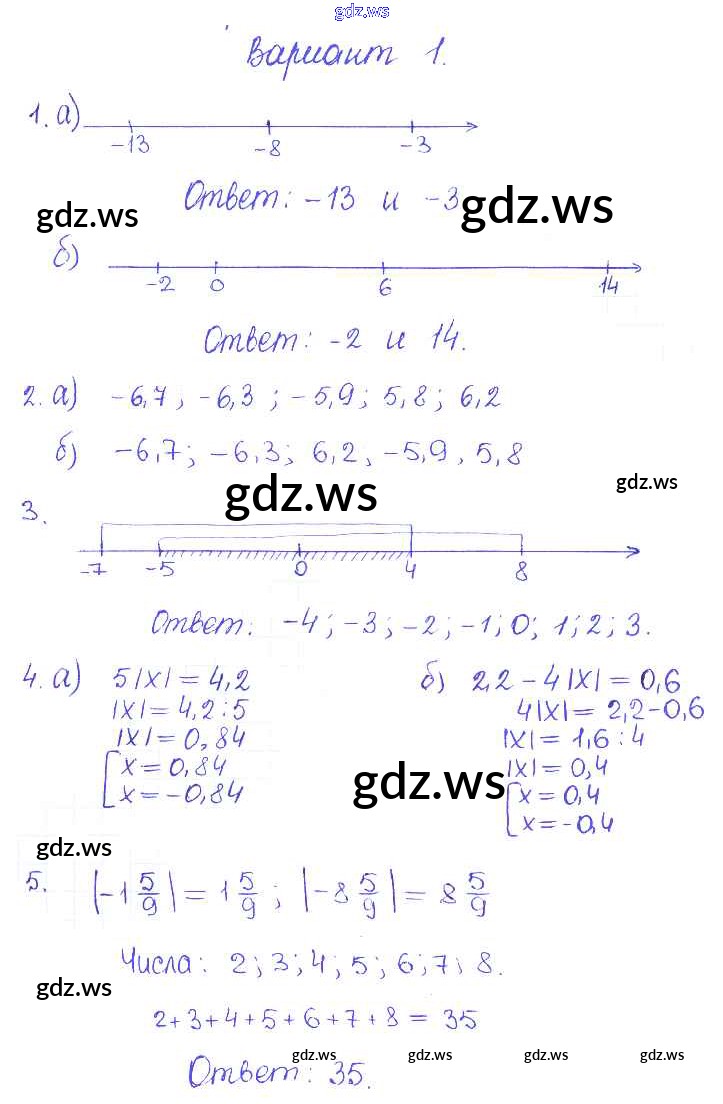 gdz.ws
Вариант 1.
1. а) -13 -8 -3
Ответ: -13 и -3
gdz.ws gdz.ws
б) -2 0 6 14
Ответ: -2 и 14.
2. а) -6,7; -6,3; -5,9; 5,8; 6,2
б) -6,7; -6,3; 6,2, -5,9, 5,8
gdz.ws gdz.ws
3. -7 -5 0 4 8
Ответ: -4; -3; -2; -1; 0; 1; 2; 3.
4. а) 5|x| = 4,2 б) 2,2 - 4|x| = 0,6
|x| = 4,2 : 5 4|x| = 2,2 - 0,6
|x| = 0,84 |x| = 1,6 : 4
[x = 0,84 |x| = 0,4
x = -0,84 [x = 0,4
gdz.ws x = -0,4
gdz.ws
5. |-1 5/9| = 1 5/9; |-8 5/9| = 8 5/9
Числа: 2; 3; 4; 5; 6; 7, 8.
gdz.ws
2+3+4+5+6+7+8 = 35
gdz.ws gdz.ws gdz.ws gdz.ws
Ответ: 35.